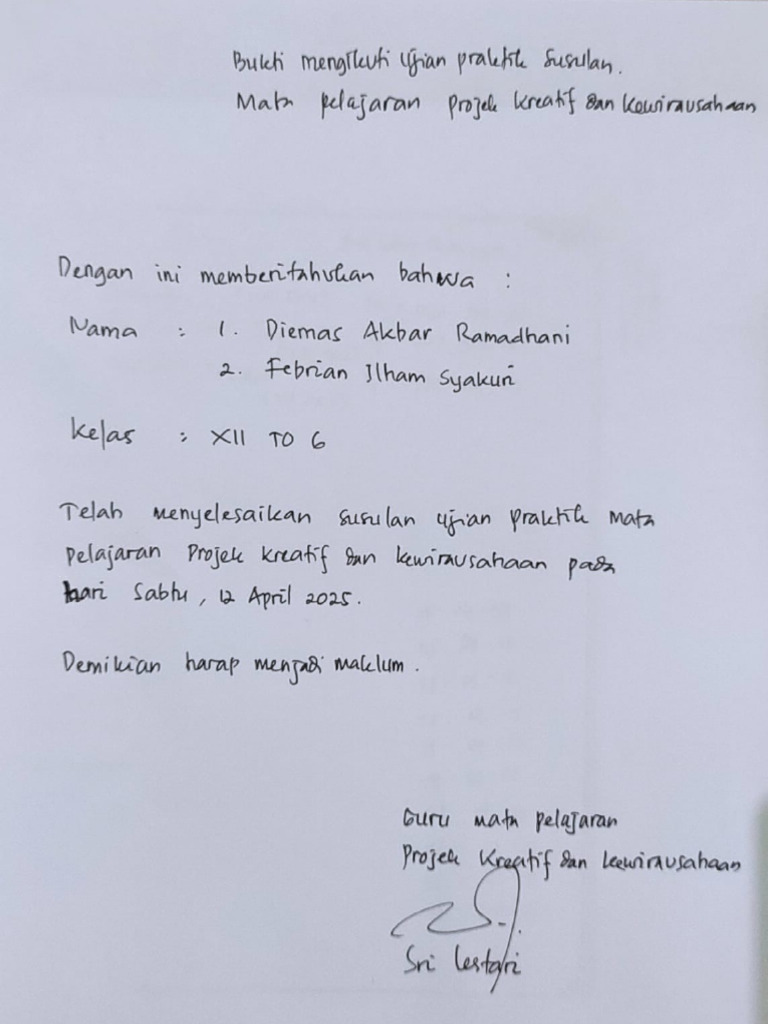 Bukti mengikuti ujian praktik susulan.
Mata pelajaran Projek kreatif dan kewirausahaan
Dengan ini memberitahukan bahwa :
Nama : 1. Diemas Akbar Ramadhani
2. Febrian Ilham Syakuri
Kelas : XII TO 6
Telah menyelesaikan susulan ujian praktik mata
pelajaran Projek kreatif dan kewirausahaan pada
hari Sabtu, 12 April 2025.
Demikian harap menjadi maklum.
Guru mata pelajaran
Projek Kreatif dan kewirausahaan
Sri Lestari